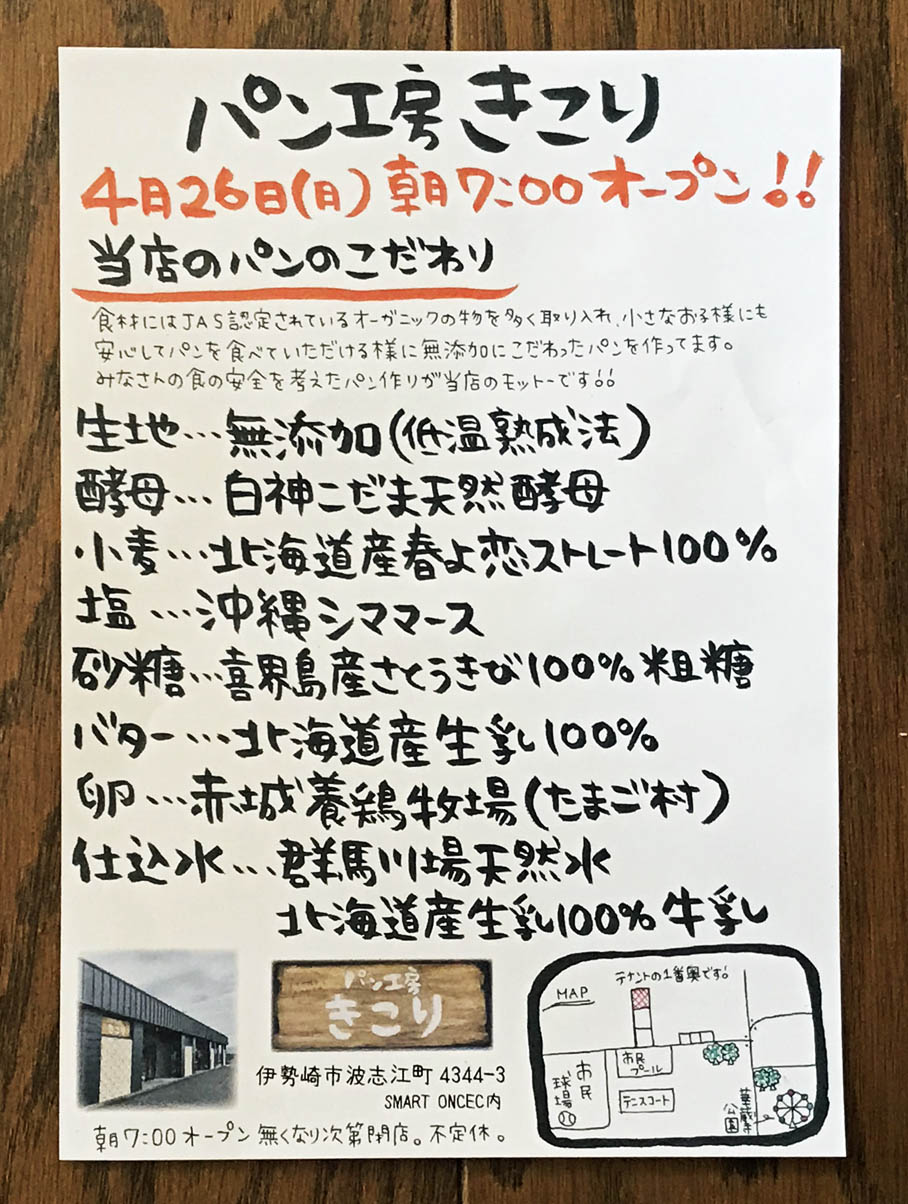 パン工房 きこり
4月26日(月) 朝7:00 オープン!!
当店のパンのこだわり
食材にはJAS認定されているオーガニックの物を多く取り入れ、小さなお子様にも
安心してパンを食べていただける様に無添加にこだわったパンを作ってます。
みなさんの食の安全を考えたパン作りが当店のモットーです!!
生地…無添加(低温熟成法)
酵母…白神こだま天然酵母
小麦…北海道産春よ恋ストレート100%
塩…沖縄シママース
砂糖…喜界島産さとうきび100%粗糖
バター…北海道産生乳100%
卵…赤城養鶏牧場(たまご村)
仕込水…群馬川場天然水
北海道産生乳100%牛乳
パン工房
きこり
伊勢崎市波志江町4344-3
SMART ONCEC内
朝7:00オープン 無くなり次第閉店。不定休。
テナントの1番奥です!
MAP
市民
プール
市民
球場
テニスコート
華蔵寺
公園